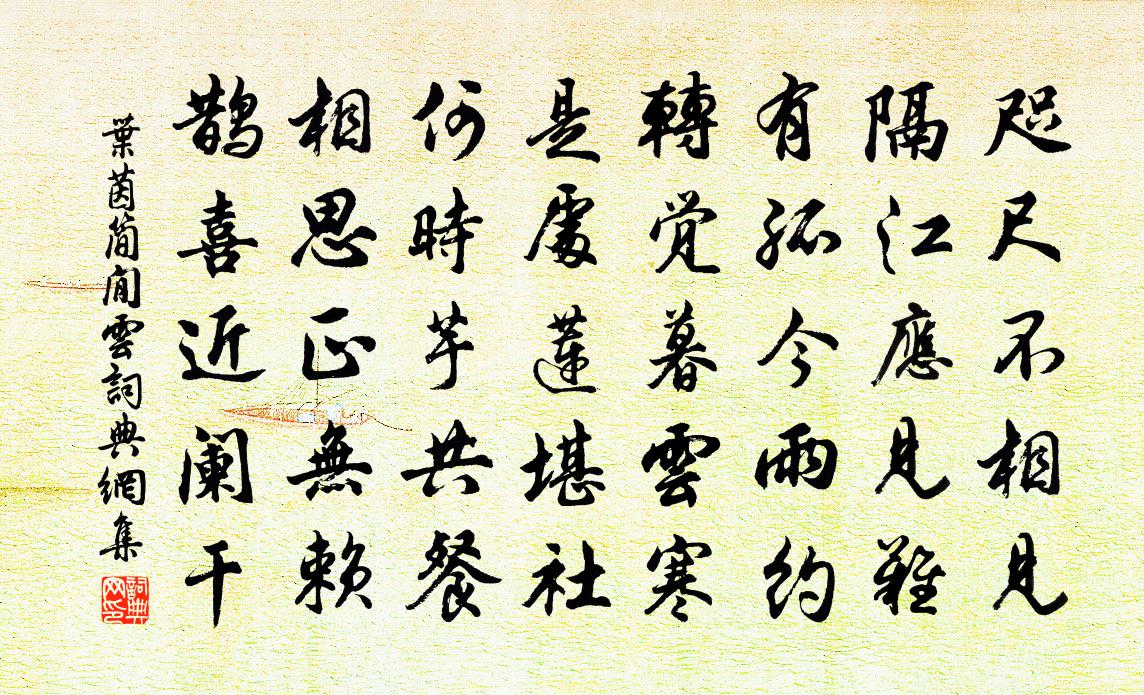 咫尺不相見
隔江應見難
有孤今雨約
轉觉暮雲寒
是處蓮堪社
何時芋共餐
相思正無賴
鵲喜近阑干
葉茵簡閒雲詞典網集
詞典网印